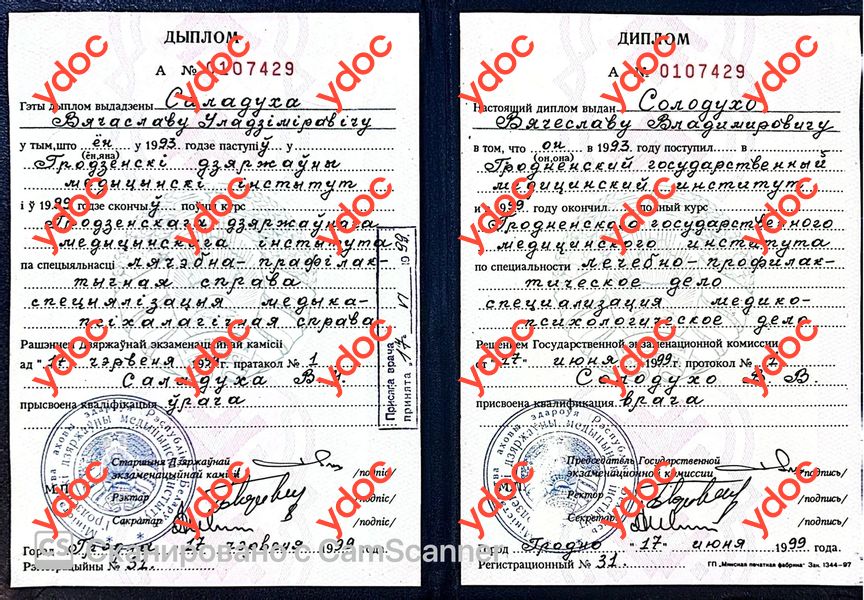 ДЫПЛОМ
А № 0107429
Гэты дыплом выдадзены Саладуха
Вячаславу Уладзіміравічу
у тым, што ён у 1993 годзе паступіў у
(ён, яна)
Гродзенскі дзяржаўны
медыцынскі інстытут
і ў 1999 годзе скончыў поўны курс
Гродзенскага дзяржаўнага
медыцынскага інстытута
па спецыяльнасці лячэбна-прафілак-
тычная справа
спецыялізацыя медыка-
псіхалагічная справа
Рашэннем Дзяржаўнай экзаменацыйнай камісіі
ад "17" чэрвеня 1999 г. пратакол № 1
Саладуха В. У.
прысвоена кваліфікацыя ўрача
Старшыня Дзяржаўнай
экзаменацыйнай камісіі /подпіс/
М.П.
Рэктар /подпіс/
Сакратар /подпіс/
Горад Гродна 17 чэрвеня 1999 года.
Рэгістрацыйны № 31.
Присяга врача
принята 17 1999
ДИПЛОМ
А № 0107429
Настоящий диплом выдан Солодухо
Вячеславу Владимировичу
в том, что он в 1993 году поступил в
(он, она)
Гродненский государственный
медицинский институт
и в 1999 году окончил полный курс
Гродненского государственного
медицинского института
по специальности лечебно-профилак-
тическое дело
специализация медико-
психологическое дело
Решением Государственной экзаменационной комиссии
от "17" июня 1999 г. протокол № 1
Солодухо В. В.
присвоена квалификация врача
Председатель Государственной
экзаменационной комиссии /подпись/
М.П.
Ректор /подпись/
Секретарь /подпись/
Город Гродно "17" июня 1999 года.
Регистрационный № 31.
ГП „Минская печатная фабрика" Зак. 1344-97
CS Сканировано с CamScanner
ydoc